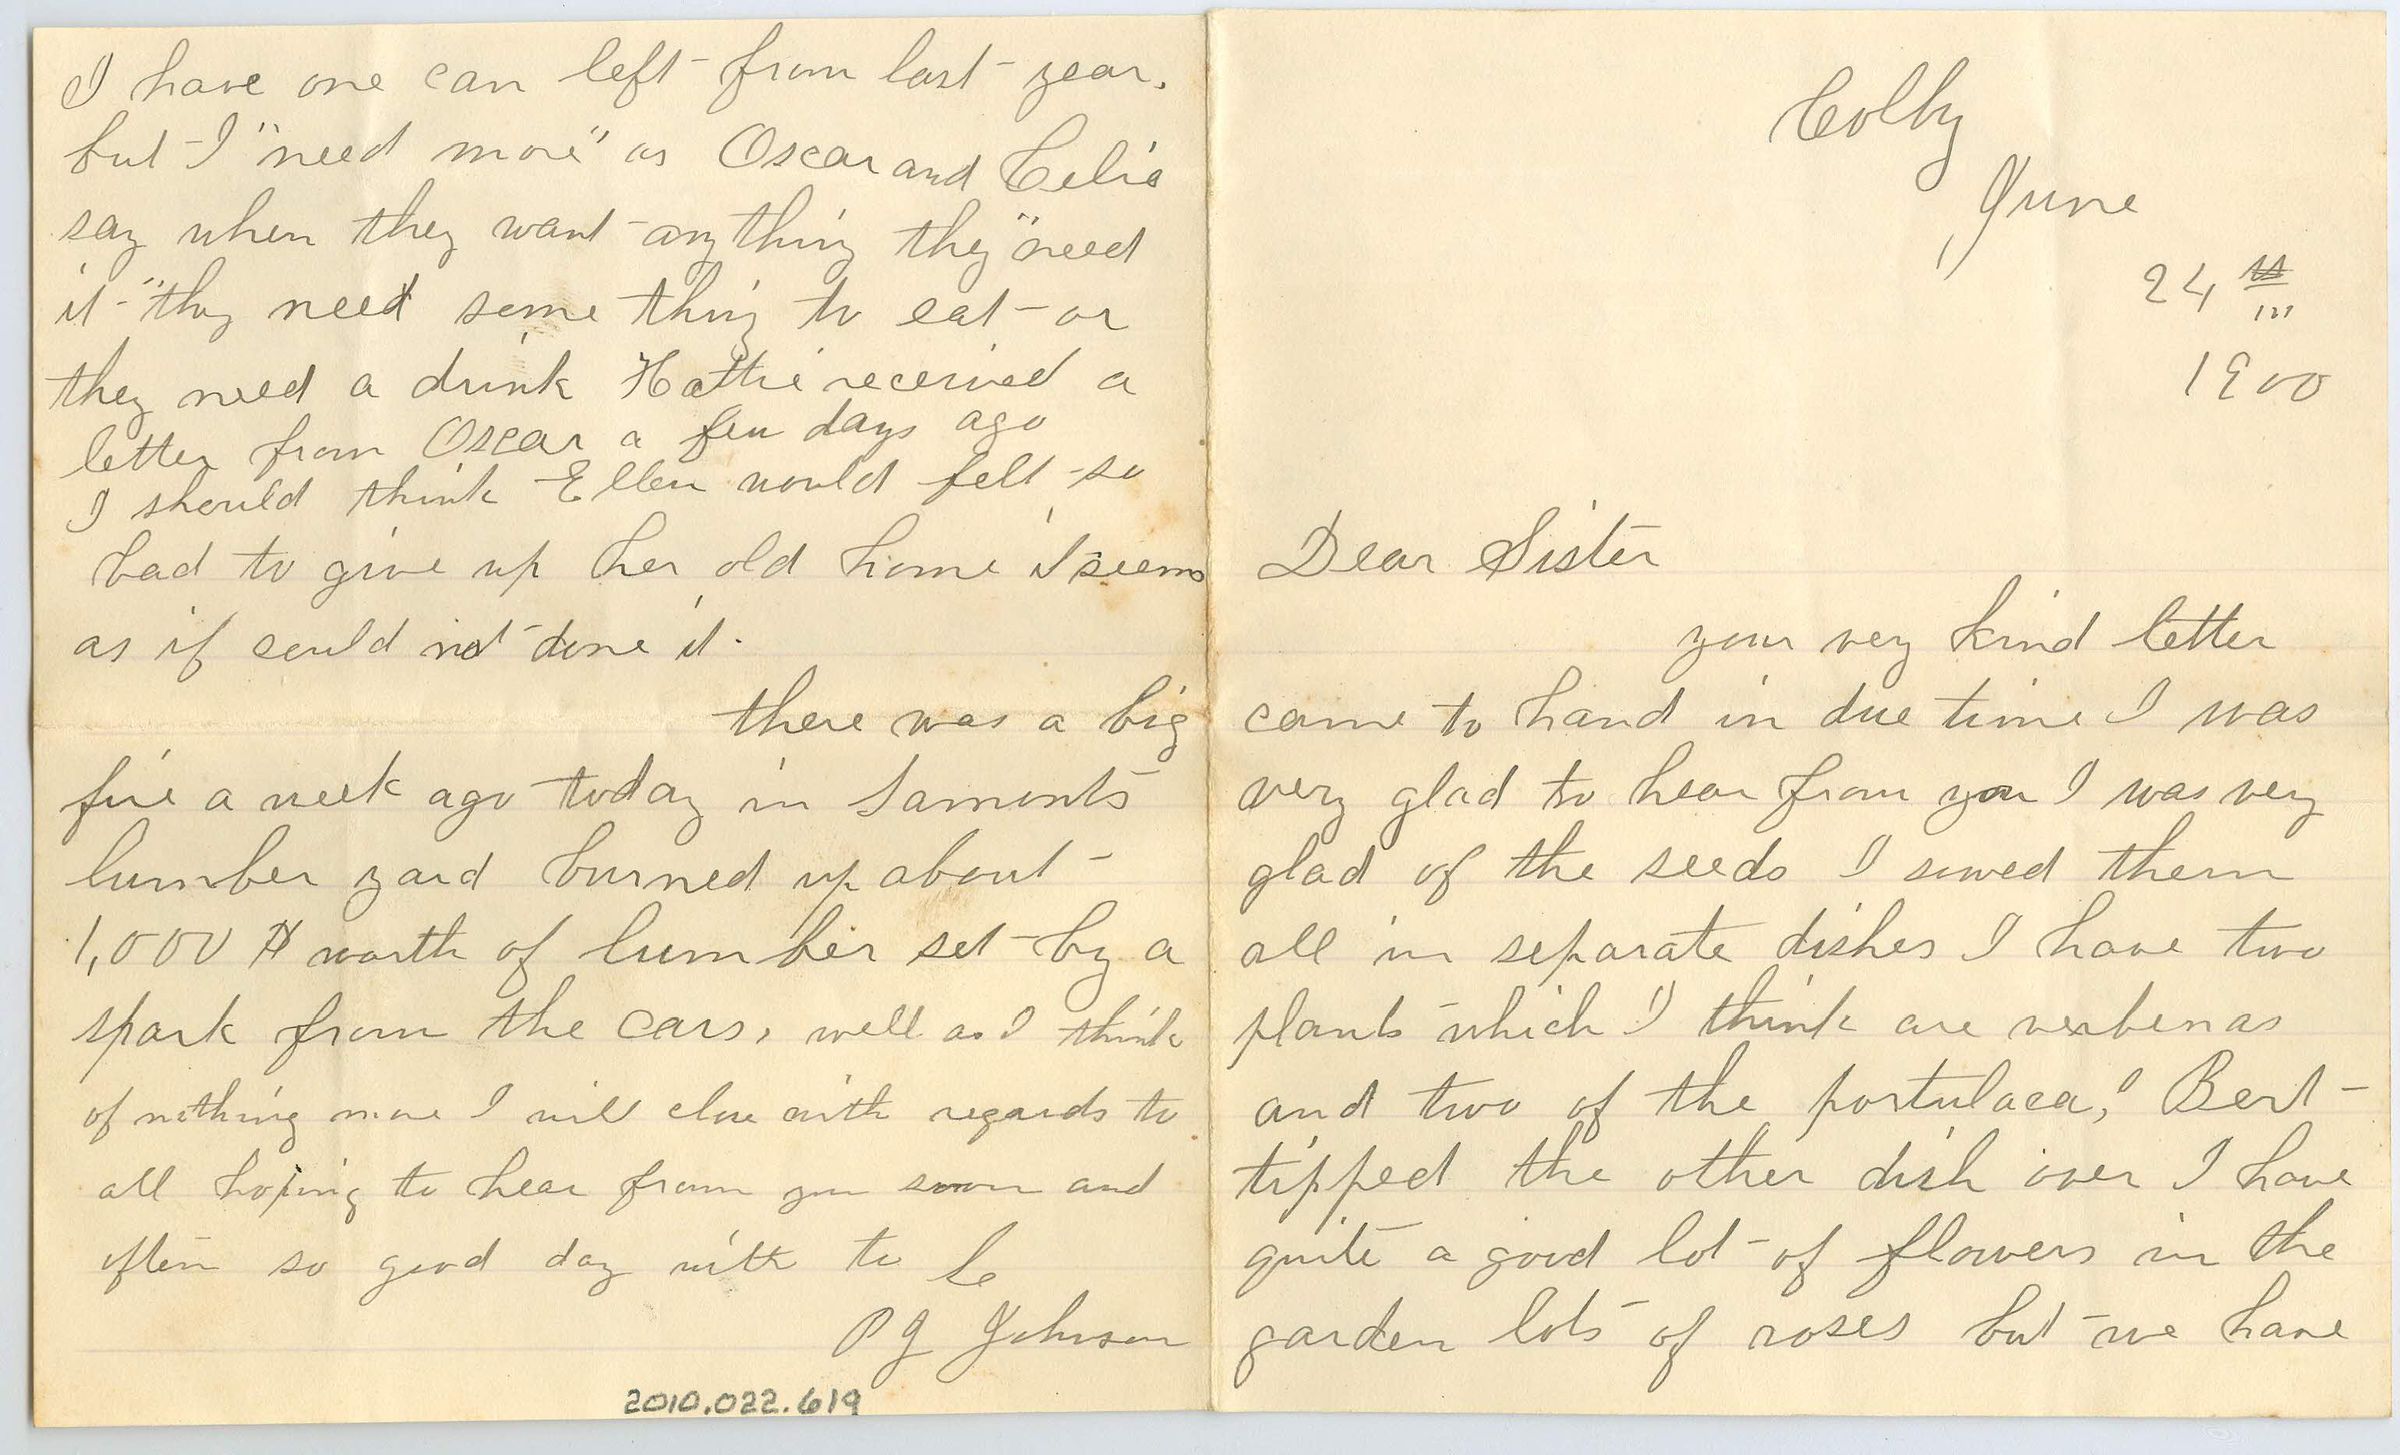 Colby
June
24
1900
Dear Sister
your very kind letter
came to hand in due time I was
very glad to hear from you I was very
glad of the seeds I sowed them
all in separate dishes I have two
plants which I think are verbenas
and two of the portulaca, Bert
tipped the other dish over I have
quite a good lot of flowers in the
garden lots of roses but we have
I have one can left from last year.
but I "need more" as Oscar and Celia
say when they want anything they "need
it" they need some thing to eat or
they need a drink Hattie received a
letter from Oscar a few days ago
I should think Ellen would felt so
bad to give up her old home I seems
as if could not done it.
there was a big
fire a week ago today in Lamonts
lumber yard burned up about
1,000 $ worth of lumber set by a
spark from the cars, well as I think
of nothing more I will close with regards to
all hoping to hear from you soon and
often so good day with to
P J Johnson
2010.022.619